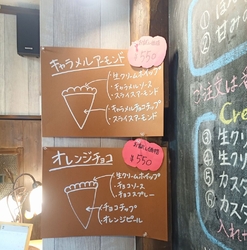 キャラメルアーモンド
お試し価格
¥550
・生クリームホイップ
・キャラメルソース
・スライスアーモンド
・キャラメルチョコチップ
・スライスアーモンド
オレンジチョコ
お試し価格
¥550
・生クリームホイップ
・チョコソース
・チョコスプレー
・チョコチップ
・オレンジピール
① ほ
② 甘み
ご注文は
Cre
③ 生ク
④ 生ク
⑤ カスタ
⑥ カスタ
入れ